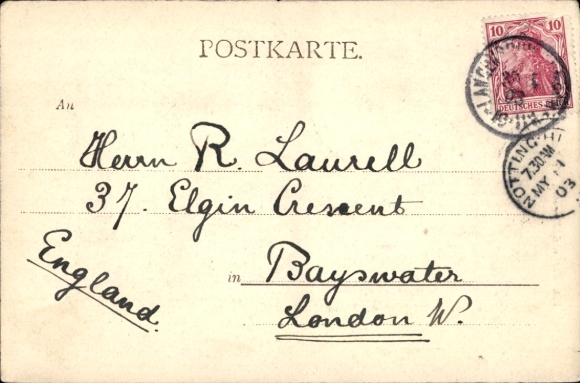 POSTKARTE.
10 10
DEUTSCHES
An
Herrn R. Laurell
37. Elgin Crescent
in Bayswater
London W.
England.
NOTTING-HI
7.30 AM
MY 11
03